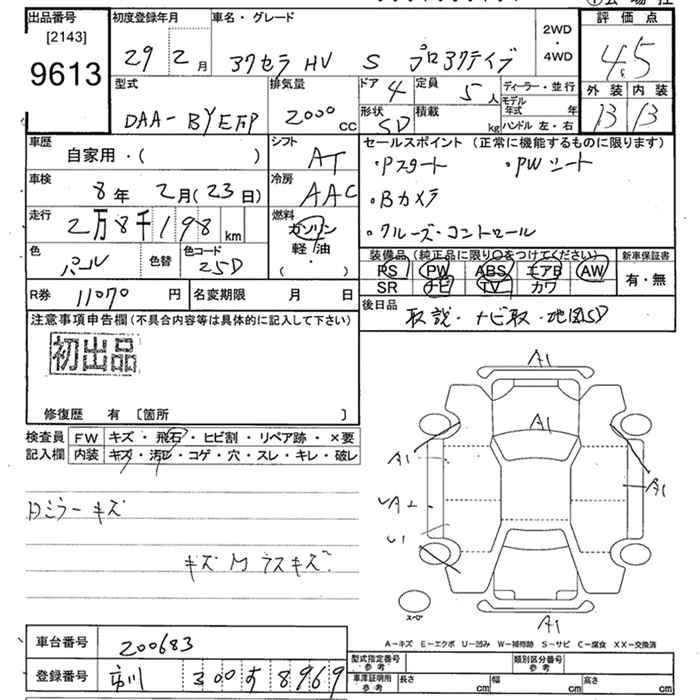 出品番号 初度登録年月 車名・グレード 評価点
[2143]
9613
29 2月 アクセラ HV S プロアクティブ 2WD・4WD 4.5
型式 排気量 ドア 4 定員 5人 ディーラー・並行 外装 内装
DAA-BYEFP 2000cc 形状 SD 積載 kg モデル年式 年 B B
ハンドル 左・右
車歴 シフト セールスポイント（正常に機能するものに限ります）
自家用・（ ） AT ・Pスタート ・PWシート
車検 冷房
8年 2月（23日） AAC ・Bカメラ
走行 燃料
2万8千198km ガソリン ・クルーズ・コントロール
軽油
色 色替 色コード （・） 装備品（純正品に限り○をつけてください） 新車保証書
パール 25D PS PW ABS エアB AW 有・無
SR ナビ TV カワ
R券 11070円 名変期限 月 日 後日品
取説・ナビ取・地図SD
注意事項申告欄（不具合内容等は具体的に記入して下さい）
初出品
修復歴 有 〔箇所 〕
検査員 FW キズ・飛石・ヒビ割・リペア跡・×要
記入欄 内装 キズ・汚レ・コゲ・穴・スレ・キレ・破レ
A1
A1
A1
A1
A2
U1
A1
Dミラーキズ
キズ M ラスキズ
スペア
車台番号 200683
A－キズ E－エクボ U－凹み W－補修跡 S－サビ C－腐食 XX－交換済
登録番号 市川 300 す 8969
型式指定番号 参考 類別区分番号 参考
車庫証明用 参考 長さ cm 幅 cm 高さ cm